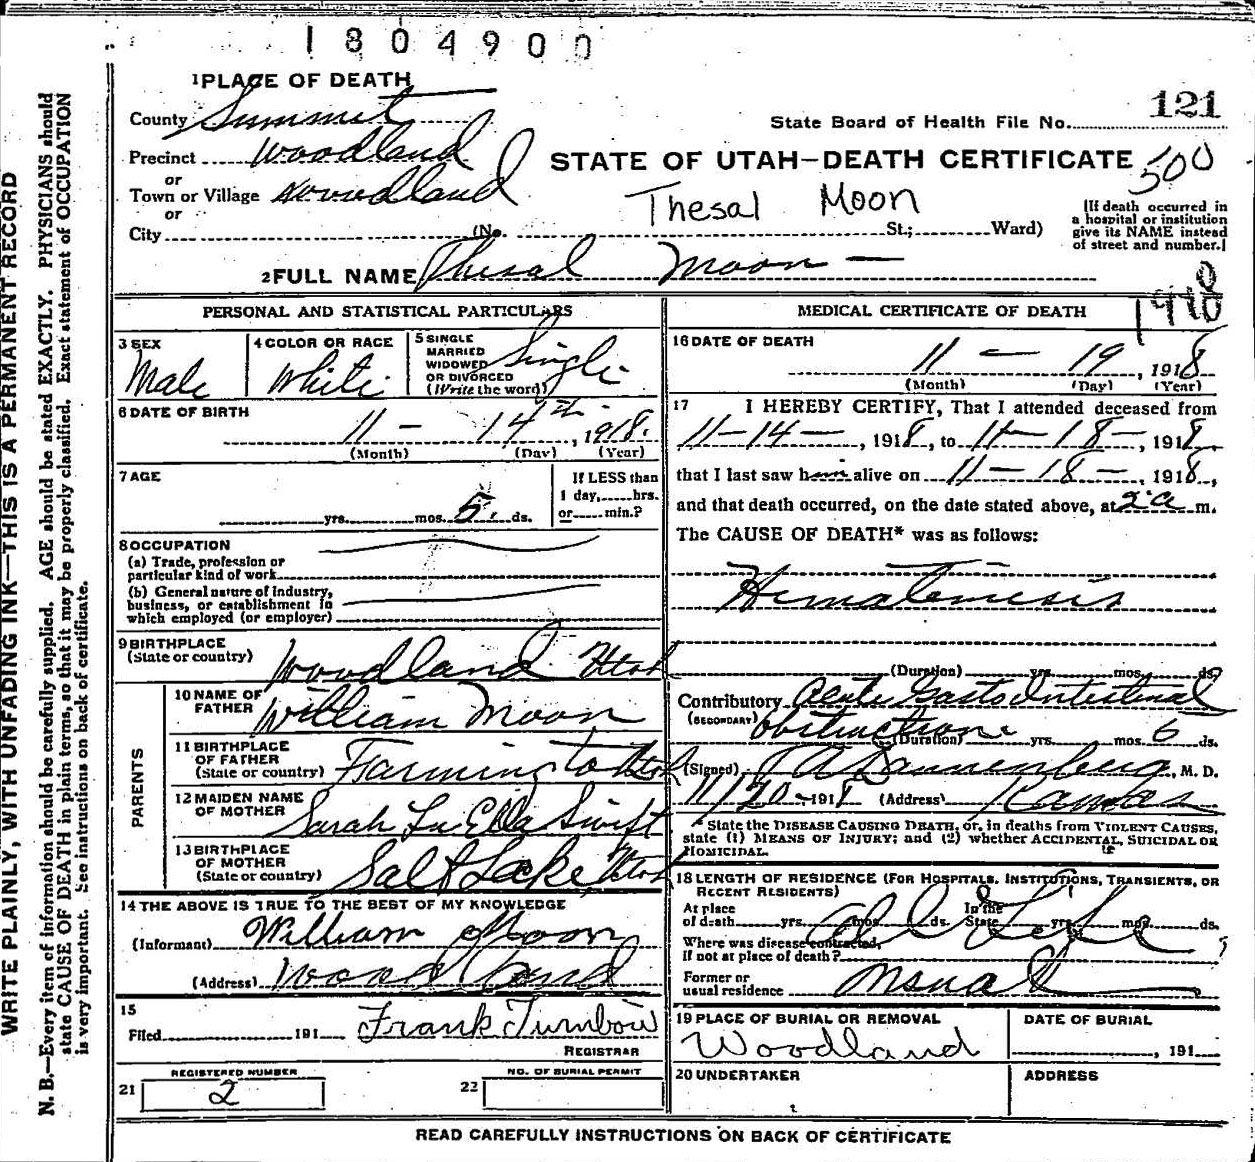 1804900
1 PLACE OF DEATH
121
County Summit
State Board of Health File No.
Precinct Woodland
STATE OF UTAH—DEATH CERTIFICATE
500
or
Town or Village Woodland
Thesal Moon
or
City (No. St.; Ward)
(If death occurred in
a hospital or institution
give its NAME instead
of street and number.)
2 FULL NAME Thesal Moon —
1918
PERSONAL AND STATISTICAL PARTICULARS
3 SEX
Male
4 COLOR OR RACE
White
5 SINGLE
MARRIED
WIDOWED
OR DIVORCED
(Write the word)
Single
6 DATE OF BIRTH
11 - 14th, 1918.
(Month) (Day) (Year)
7 AGE
yrs. mos. 5. ds.
If LESS than
1 day, hrs.
or min.?
8 OCCUPATION
(a) Trade, profession or
particular kind of work
(b) General nature of industry,
business, or establishment in
which employed (or employer)
9 BIRTHPLACE
(State or country) Woodland Utah
PARENTS
10 NAME OF
FATHER William Moon
11 BIRTHPLACE
OF FATHER
(State or country) Farmington Utah
12 MAIDEN NAME
OF MOTHER Sarah Lu Ella Swift
13 BIRTHPLACE
OF MOTHER
(State or country) Salt Lake Utah
14 THE ABOVE IS TRUE TO THE BEST OF MY KNOWLEDGE
(Informant) William Moon
(Address) Woodland
15
Filed 191 Frank Turnbow
REGISTRAR
21 REGISTERED NUMBER
2
22 NO. OF BURIAL PERMIT
MEDICAL CERTIFICATE OF DEATH
16 DATE OF DEATH
11 — 19, 1918
(Month) (Day) (Year)
17 I HEREBY CERTIFY, That I attended deceased from
11-14-, 1918, to 11-18-, 1918,
that I last saw him alive on 11-18-, 1918,
and that death occurred, on the date stated above, at 2 a m.
The CAUSE OF DEATH* was as follows:
Hematemesis
(Duration) yrs. mos. ds.
Contributory Acute Gasto Intestinal
(SECONDARY) Obstruction
(Duration) yrs. mos. 6 ds.
(Signed) Dannenberg, M. D.
11/20-1918 (Address) Kamas
* State the DISEASE CAUSING DEATH, or, in deaths from VIOLENT CAUSES,
state (1) MEANS OF INJURY; and (2) whether ACCIDENTAL, SUICIDAL OR
HOMICIDAL.
18 LENGTH OF RESIDENCE (FOR HOSPITALS, INSTITUTIONS, TRANSIENTS, OR
RECENT RESIDENTS)
At place In the
of death yrs. mos. ds. State yrs. mos. ds.
Where was disease contracted,
if not at place of death?
Former or
usual residence
19 PLACE OF BURIAL OR REMOVAL
Woodland
DATE OF BURIAL
, 191
20 UNDERTAKER
ADDRESS
READ CAREFULLY INSTRUCTIONS ON BACK OF CERTIFICATE
WRITE PLAINLY, WITH UNFADING INK—THIS IS A PERMANENT RECORD
N. B.—Every item of information should be carefully supplied. AGE should be stated EXACTLY. PHYSICIANS should
state CAUSE OF DEATH in plain terms, so that it may be properly classified. Exact statement of OCCUPATION
is very important. See instructions on back of certificate.